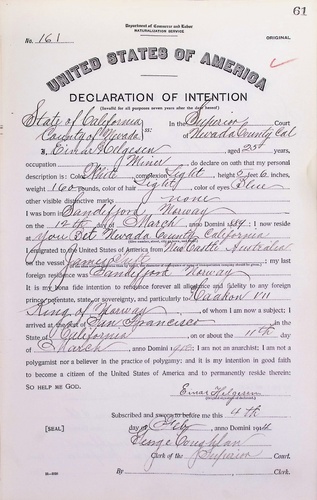 61
Department of Commerce and Labor
NATURALIZATION SERVICE
No. 161 ORIGINAL
UNITED STATES OF AMERICA
DECLARATION OF INTENTION
(Invalid for all purposes seven years after the date hereof)
State of California In the Superior Court
County of Nevada ss: of Nevada County Cal
I, Einar Helgesen, aged 25 years,
occupation Miner, do declare on oath that my personal
description is: Color White, complexion Light, height 5 feet 6 inches,
weight 160 pounds, color of hair Light, color of eyes Blue
other visible distinctive marks none
I was born in Sandefjord Norway
on the 12th day of March, anno Domini 1; I now reside
at You Bet Nevada County, California
I emigrated to the United States of America from New Castle Australia
on the vessel James Tuft; my last
foreign residence was Sandefjord Norway
It is my bona fide intention to renounce forever all allegiance and fidelity to any foreign
prince, potentate, state, or sovereignty, and particularly to Haakon VII
King of Norway, of whom I am now a subject; I
arrived at the port of San Francisco, in the
State of California, on or about the 11th day
of March, anno Domini 191; I am not an anarchist; I am not a
polygamist nor a believer in the practice of polygamy; and it is my intention in good faith
to become a citizen of the United States of America and to permanently reside therein:
SO HELP ME GOD.
Einar Helgesen
Subscribed and sworn to before me this 4th
[SEAL] day of Feb, anno Domini 191
George Coughlan
Clerk of the Superior Court.
By, Clerk.